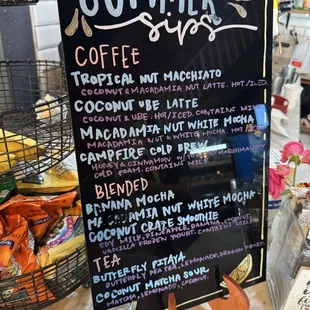 SUMMER
sips
COFFEE
TROPICAL NUT MACCHIATO
COCONUT & MACADAMIA NUT LATTE. HOT/ICED
COCONUT UBE LATTE
COCONUT & UBE. HOT/ICED. CONTAINS MILK
MACADAMIA NUT WHITE MOCHA
MACADAMIA NUT & WHITE MOCHA. HOT
CAMPFIRE COLD BREW
HONEY & CINNAMON W/ TOASTED MARSHMALLOW
COLD FOAM. CONTAINS MILK
BLENDED
BANANA MOCHA
MACADAMIA NUT WHITE MOCHA
COCONUT CRAPE SMOOTHIE
SOY MILK, PINEAPPLE, BANANA, COCONUT,
VANILLA FROZEN YOGURT. CONTAINS MILK
TEA
BUTTERFLY PITAYA
BUTTERFLY PEA TEA, LEMONADE, DRAGON FRUIT
COCONUT MATCHA SOUR
MATCHA, LEMONADE, COCONUT.